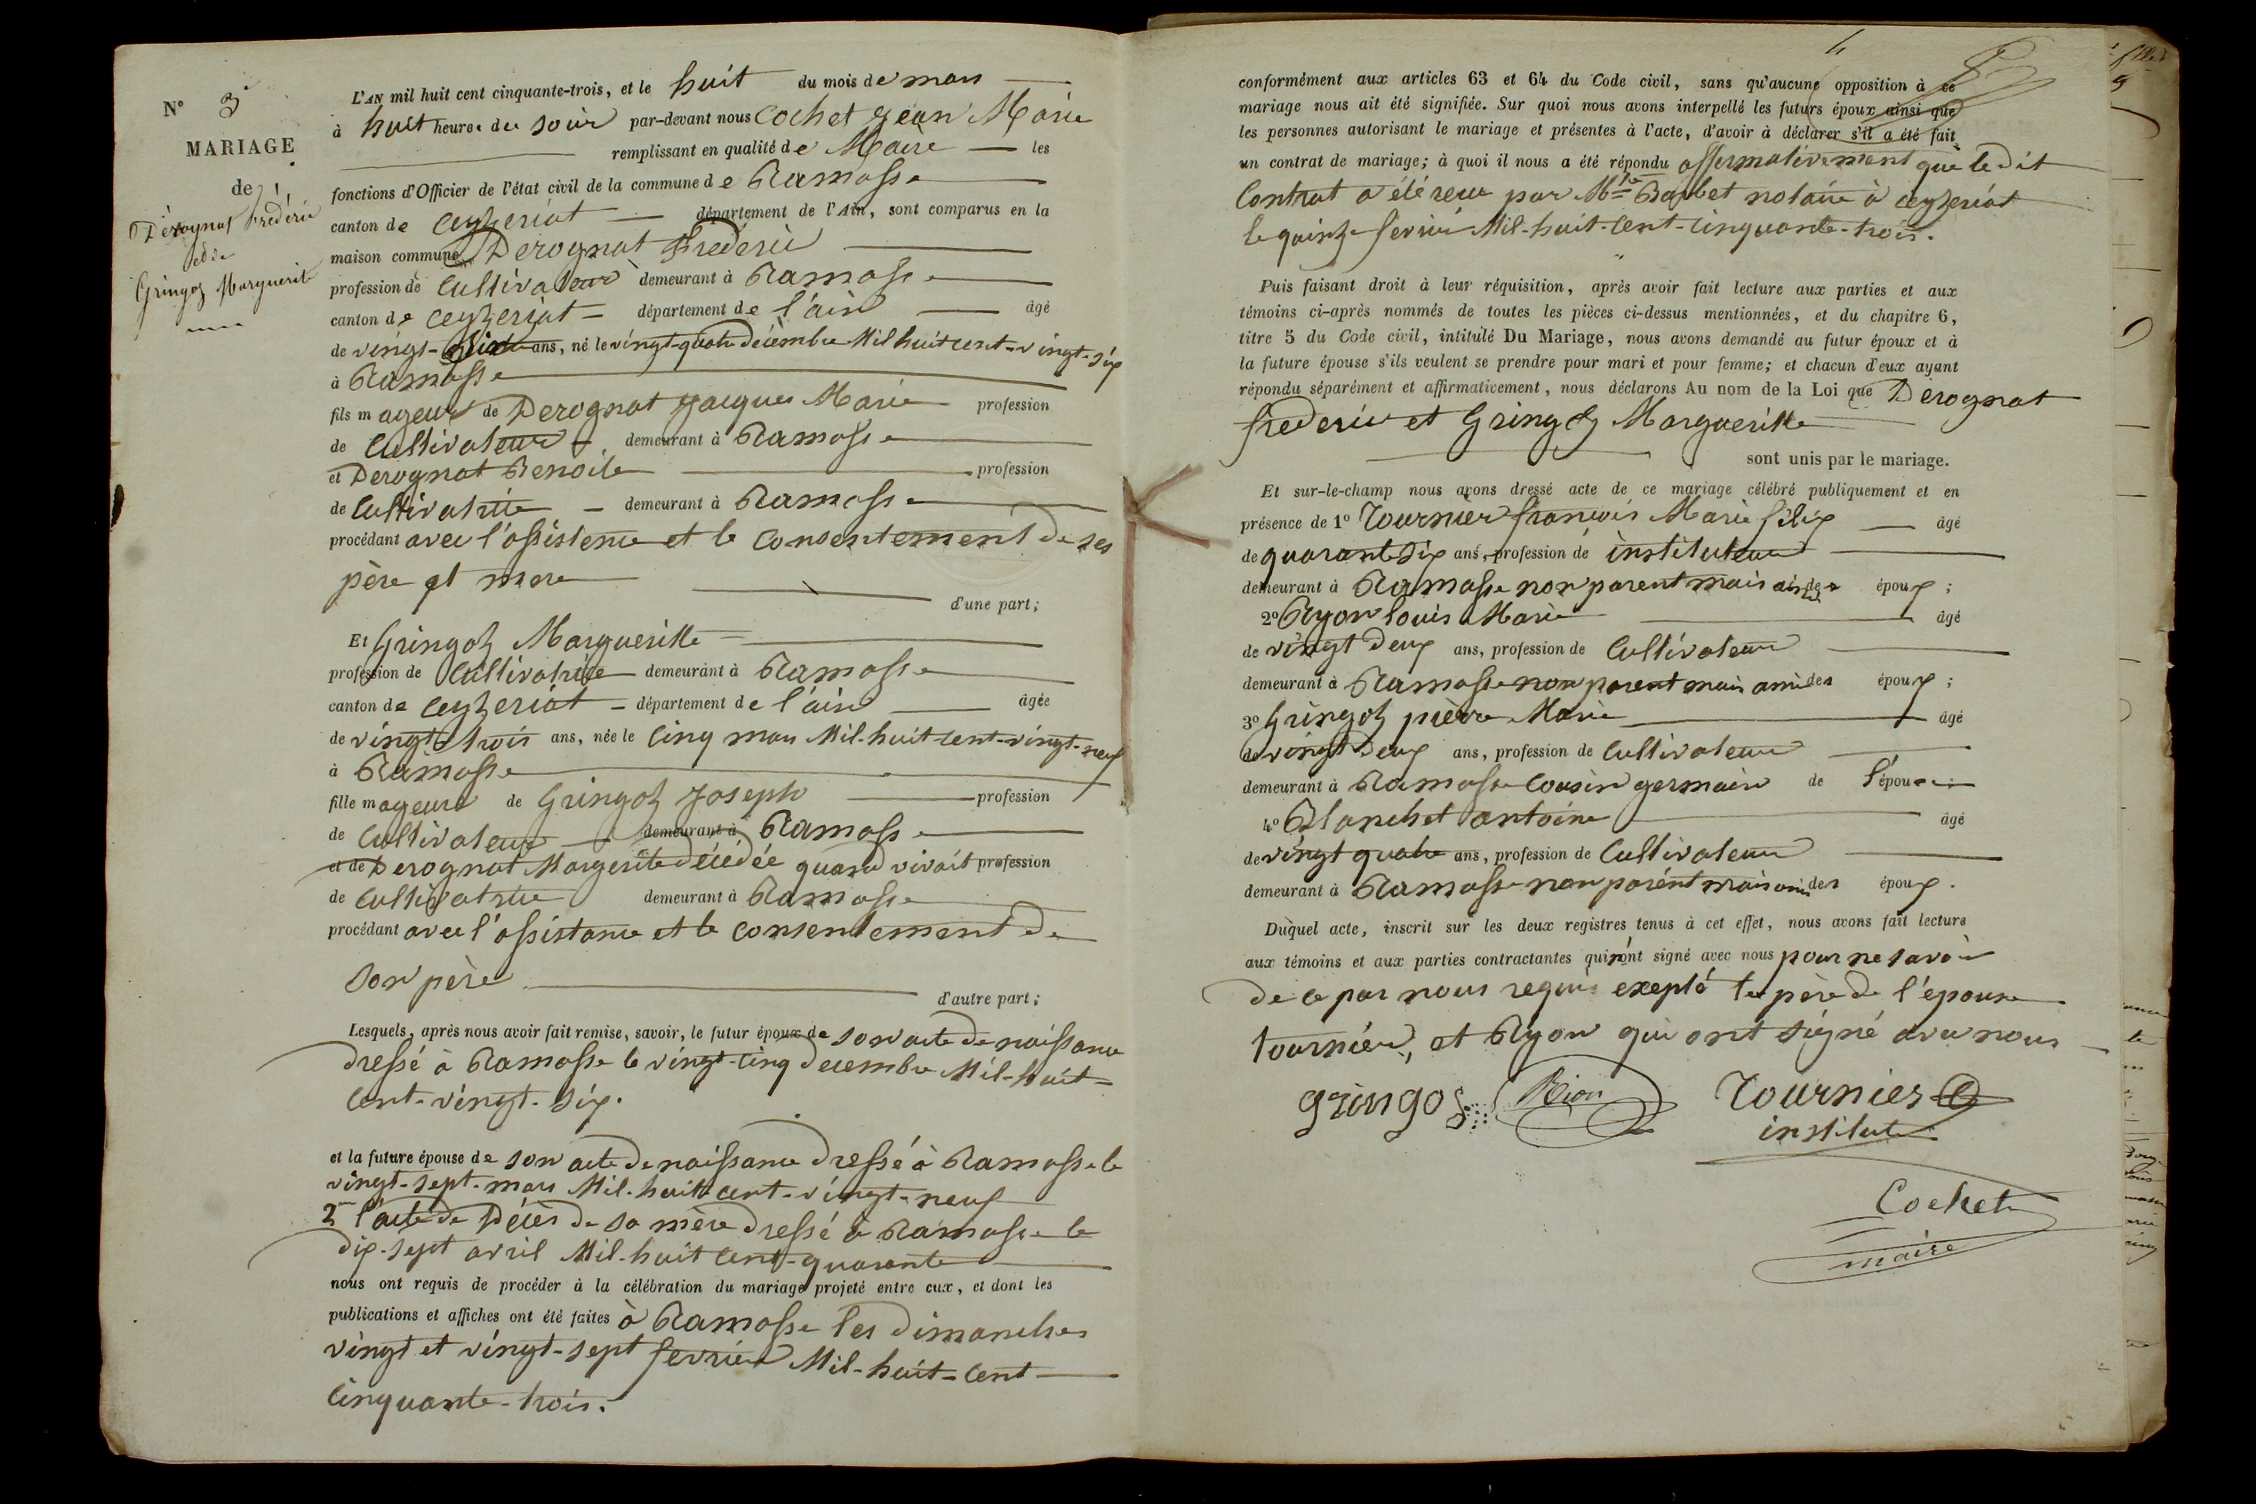 N° 3
MARIAGE
de
Dérognat Frédéric
et de
Gringoz Marguerite
L'AN mil huit cent cinquante-trois, et le huit du mois de mars
à huit heure. du soir par-devant nous Cochet Jean Marie
remplissant en qualité de Maire les
fonctions d'Officier de l'état civil de la commune de Ramasse
canton de Ceyzeriat département de l'AIN, sont comparus en la
maison commune Derognat Frederic
profession de Cultivateur demeurant à Ramasse
canton de Ceyzeriat département de l'ain âgé
de vingt-six ans, né le vingt-quatre décembre Mil huit cent-vingt-six
à Ramasse
fils mageur de Derognat Jacques Marie profession
de Cultivateur demeurant à Ramasse
et Derognat Benoite profession
de Cultivatrice demeurant à Ramasse
procédant avec l'assistence et le consentement de ses
père et mere
d'une part;
Et Gringoz Margueritte
profession de Cultivatrice demeurant à Ramasse
canton de Ceyzeriat département de l'ain âgée
de vingt trois ans, née le cinq mars Mil-huit cent-vingt-neuf
à Ramasse
fille mageure de Gringoz Joseph profession
de Cultivateur demeurant à Ramasse
et de Derognat Margerite décédée quand vivait profession
de Cultivatrice demeurant à Ramasse
procédant avec l'assistance et le consentement de
son père
d'autre part;
Lesquels, après nous avoir fait remise, savoir, le futur époux de son acte de naissance
dressé à Ramasse le vingt-cinq decembre Mil-huit-
cent-vingt-six.
et la future épouse de son acte de naissance dressé à Ramasse le
vingt-sept-mars Mil-huit cent-vingt-neuf
2° l'acte de décès de sa mère dressé à Ramasse le
dix-sept avril Mil-huit cent-quarante
nous ont requis de procéder à la célébration du mariage projeté entre eux, et dont les
publications et affiches ont été faites à Ramasse les dimanches
vingt et vingt-sept fevrier Mil-huit-cent
cinquante-trois.
4
conformément aux articles 63 et 64 du Code civil, sans qu'aucune opposition à ce
mariage nous ait été signifiée. Sur quoi nous avons interpellé les futurs époux ainsi que
les personnes autorisant le mariage et présentes à l'acte, d'avoir à déclarer s'il a été fait
un contrat de mariage; à quoi il nous a été répondu affirmativement que le dit
Contrat a été reçu par Mtre Barbet notaire à ceyzeriat
le quinze fevrier Mil-huit-cent-cinquante-trois.
Puis faisant droit à leur réquisition, après avoir fait lecture aux parties et aux
témoins ci-après nommés de toutes les pièces ci-dessus mentionnées, et du chapitre 6,
titre 5 du Code civil, intitulé Du Mariage, nous avons demandé au futur époux et à
la future épouse s'ils veulent se prendre pour mari et pour femme; et chacun d'eux ayant
répondu séparément et affirmativement, nous déclarons Au nom de la Loi que Dérognat
frederic et Gringoz Margueritte
sont unis par le mariage.
Et sur-le-champ nous avons dressé acte de ce mariage célébré publiquement et en
présence de 1° Tournier françois Marie félix âgé
de quarante six ans, profession de instituteur
demeurant à Ramasse non parent mais ami des époux;
2° Ryon louis Marie âgé
de vingt deux ans, profession de Cultivateur
demeurant à Ramasse non parent mais ami des époux;
3° Gringoz pierre Marie âgé
de vingt deux ans, profession de Cultivateur
demeurant à Ramasse cousin germain de l'épouse;
4° Blanchet antoine âgé
de vingt quatre ans, profession de Cultivateur
demeurant à Ramasse non parent mais ami des époux.
Duquel acte, inscrit sur les deux registres tenus à cet effet, nous avons fait lecture
aux témoins et aux parties contractantes qui n'ont signé avec nous pour ne savoir
de ce par nous requis exepté le père de l'épouse
tournier, et Ryon qui ont signé avec nous
gringoz Rion Tournier
institut
Cochet
maire